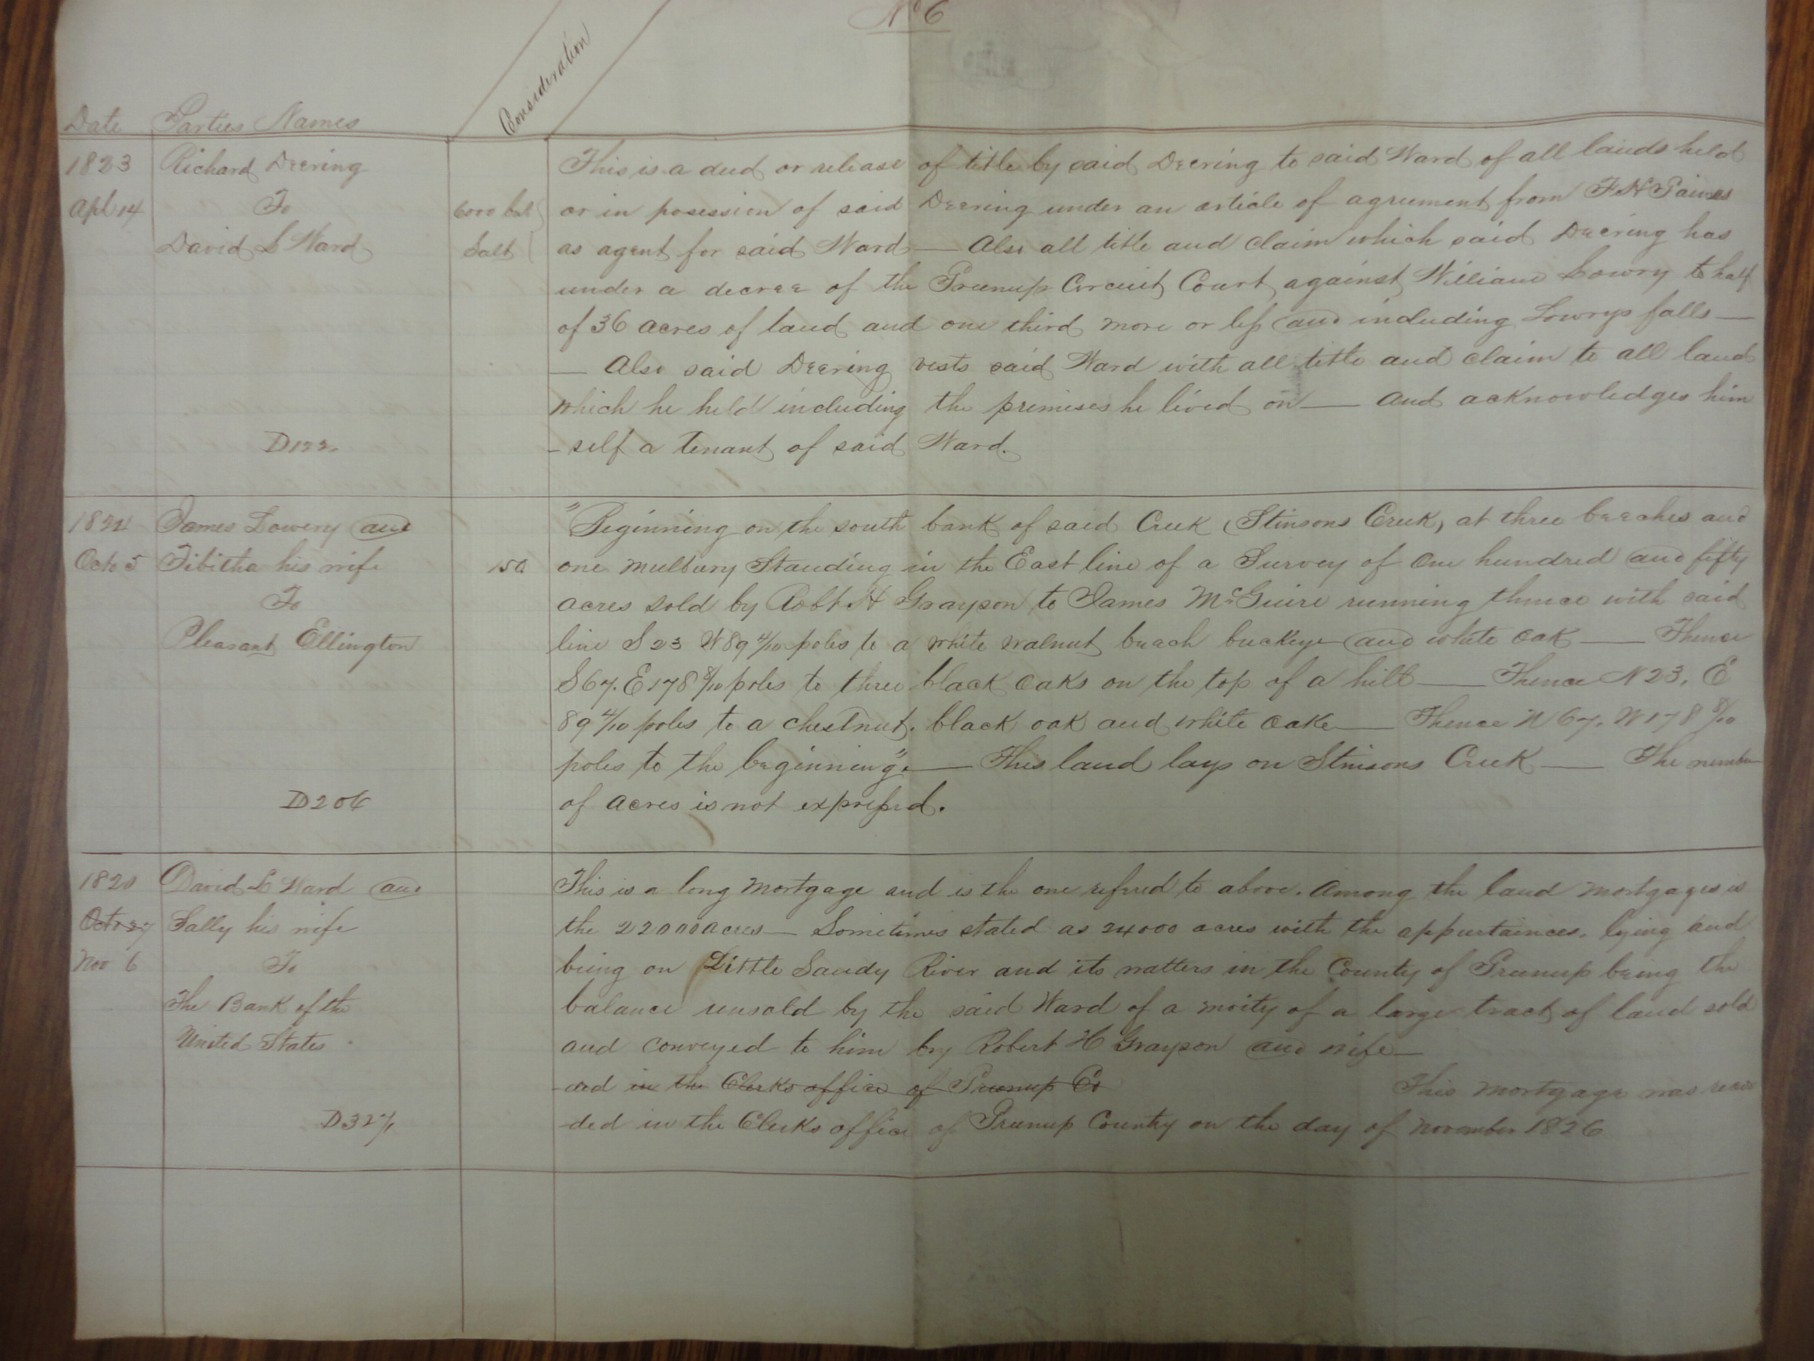 No 6
Date Parties Names Consideration
1823 Richard Deering This is a deed or release of title by said Deering to said Ward of all lands held
Apl 14 To 6000 bu or in posession of said Deering under an article of agreement from
David L Ward Salt as agent for said Ward — Also all title and claim which said Deering has
under a decree of the Greenup Circuit Court against William Lowry to half
of 36 acres of land and one third more or less and including Lowrys falls —
— Also said Deering vests said Ward with all title and claim to all land
which he held including the premises he lived on — and acknowledges him
D122 -self a tenant of said Ward.
1824 James Lowery and "Beginning on the south bank of said Creek (Stinsons Creek) at three beeches and
Octr 5 Tibitha his wife 150 one mulbury Standing in the East line of a Survey of One hundred and fifty
To acres sold by Robt H Grayson to James McGuire running thence with said
Pleasant Ellington line S 23 W 89 4/10 poles to a white walnut beach buckeye and white oak — Thence
S 67. E 178 8/10 poles to three black oaks on the top of a hill — Thence N 23. E
89 4/10 poles to a chestnut, black oak and white oake — Thence N 67. W 178 8/10
poles to the beginning". — This land lays on Stinsons Creek — The number
D206 of acres is not expressed.
David L Ward and This is a long mortgage and is the one refered to above. Among the land mortgages is
Octr 27 Sally his wife the 22000 acres — Sometimes stated as 24000 acres with the appurtainces, lying and
Nov 6 To being on Little Sandy River and its watters in the County of Greenup being the
The Bank of the balance unsold by the said Ward of a moity of a large tract of land sold
United States and conveyed to him by Robert H Grayson and wife —
-ded in the Clerks office of Greenup Co This mortgage was recor
D327 -ded in the Clerks office of Greenup County on the day of November 1826